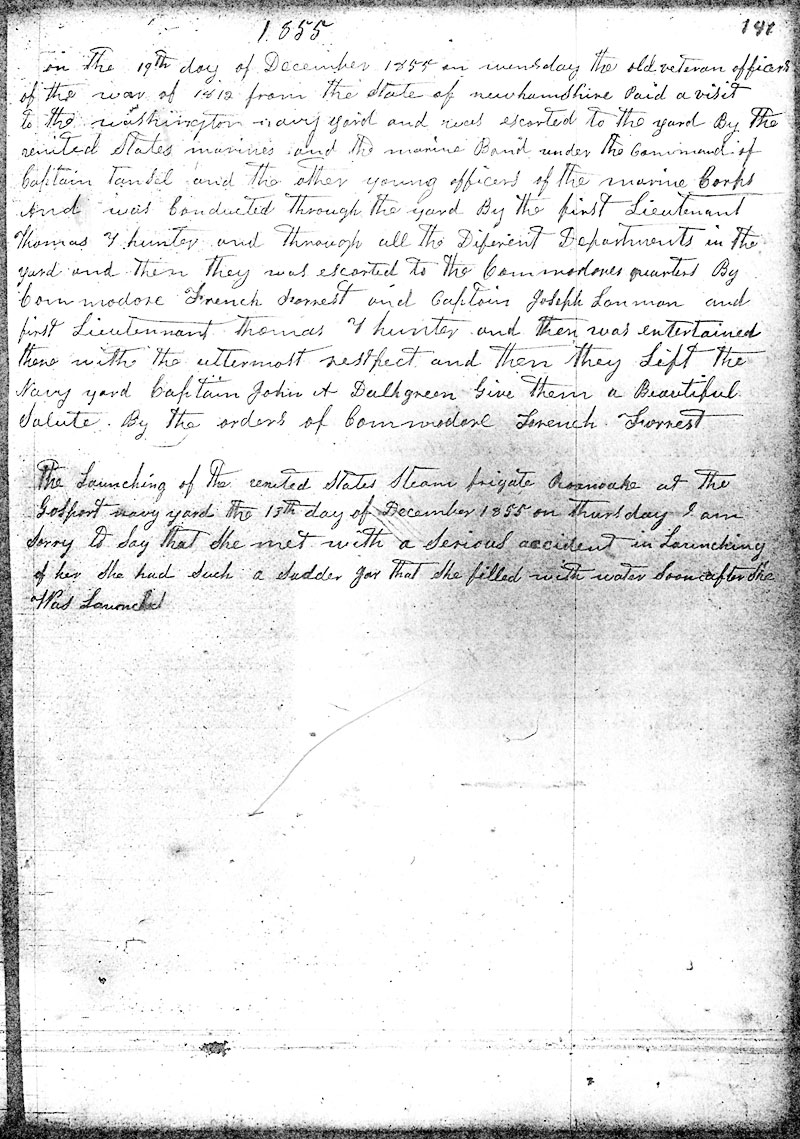 1855
181
on the 19th day of December 1855 on wensday the old veteran officers
of the war of 1812 from the State of newhamshire Paid a visit
to the washington navy yard and was escorted to the yard By the
united States marines and the marine Band under the Command of
Captain Tansil and the other young officers of the marine Corps
And was Conducted through the yard By the first Lieutenant
Thomas T hunter and through all the Diferent Departments in the
yard and then they was escorted to the Commodores quarters By
Commodore French Forrest and Captain Joseph Lanman and
first Lieutennant Thomas T hunter and then was entertained
there with the uttermost respect and then they Left the
Navy yard Captain John A Dalhgreen Give them a Beautiful
Salute. By the orders of Commodore French Forrest
The Launching of the united States Steam frigate Roanoake at the
Gosport navy yard the 13th day of December 1855 on thursday I am
Sorry to Say that She met with a Serious accident in Launching
of her She had Such a Sudder gar that She filled with water Soon after She
Was Launched